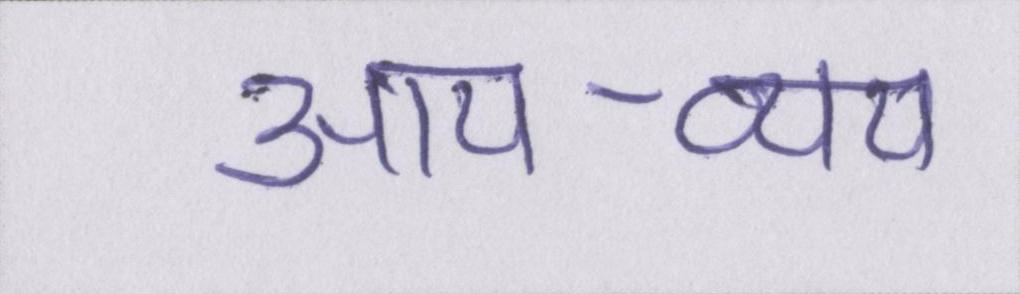 आय-व्यय